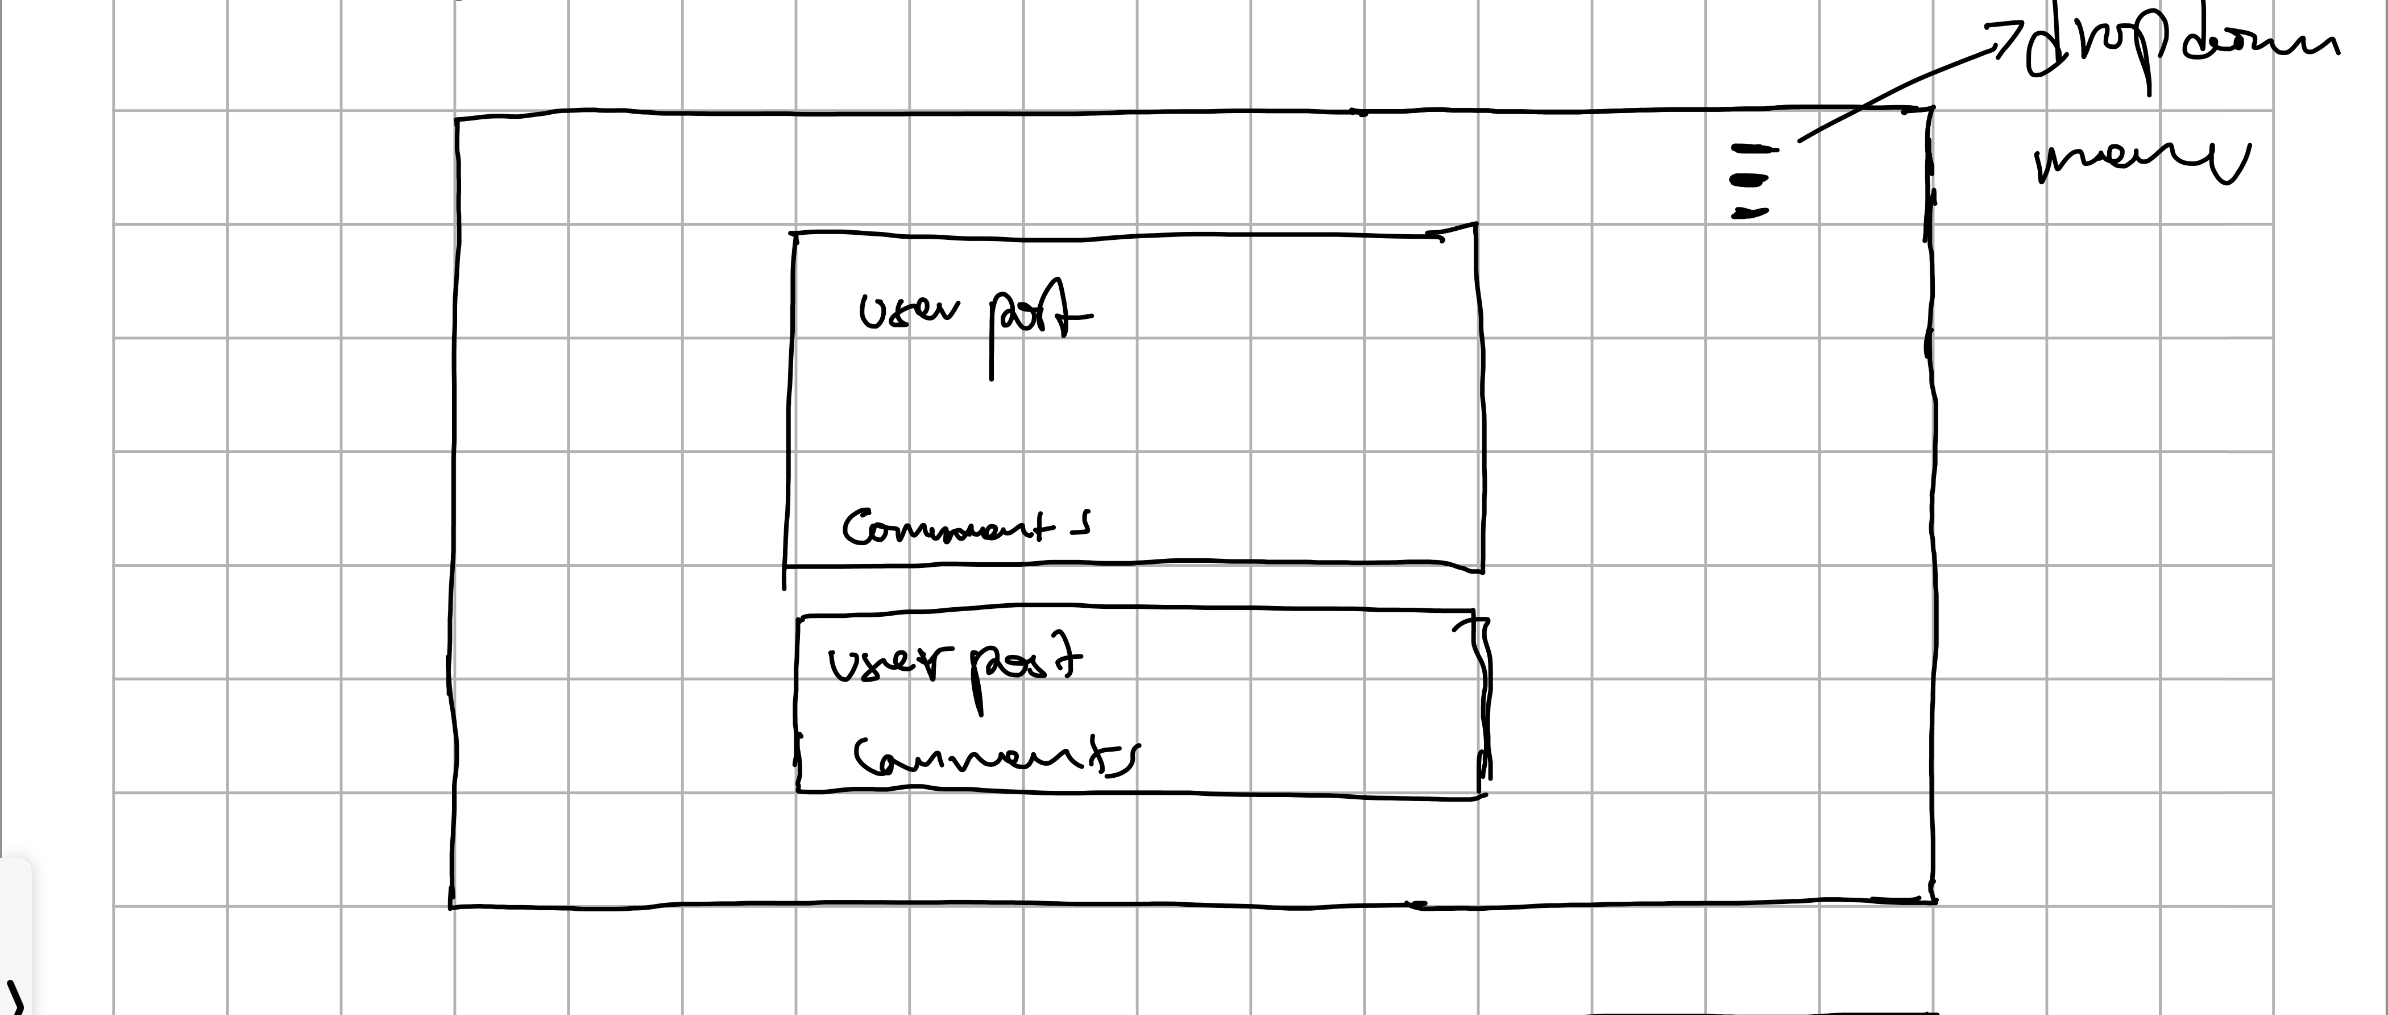 dropdown
menu
user post
Comments
user post
Comments